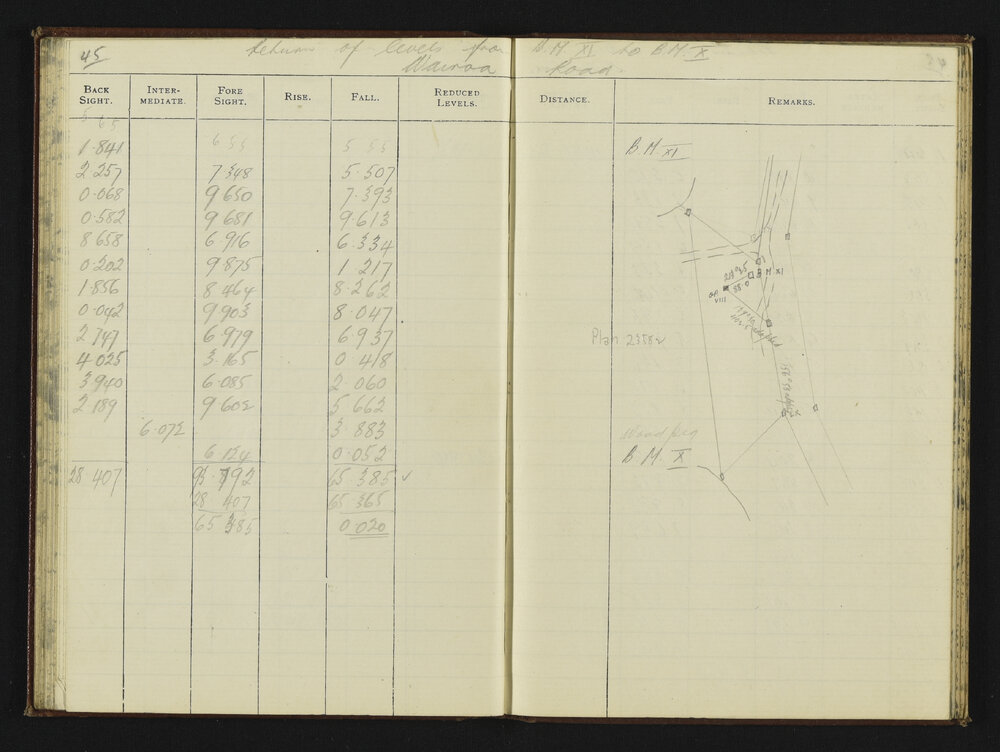 45 Return of levels from B.M. XI to B.M. X
Wairoa Road.
BACK SIGHT. INTER-MEDIATE. FORE SIGHT. RISE. FALL. REDUCED LEVELS. DISTANCE. REMARKS.
1.841 B.M. XI
2.257 7.348 5.507
0.068 9.650 7.393
0.582 9.681 9.613
8.658 6.916 6.334
0.202 9.875 1.217
1.856 8.464 8.262
0.042 9.903 8.047
2.747 6.979 6.937
4.025 3.165 0.418
3.940 6.085 2.060
2.189 9.602 5.662
6.072 3.883
6.124 0.052
28.407 93.792 65.385 ✓
28.407 65.365
65.385 0.020
B M XI
88.0
VIII
Plan 2358
Wood peg
B.M. X